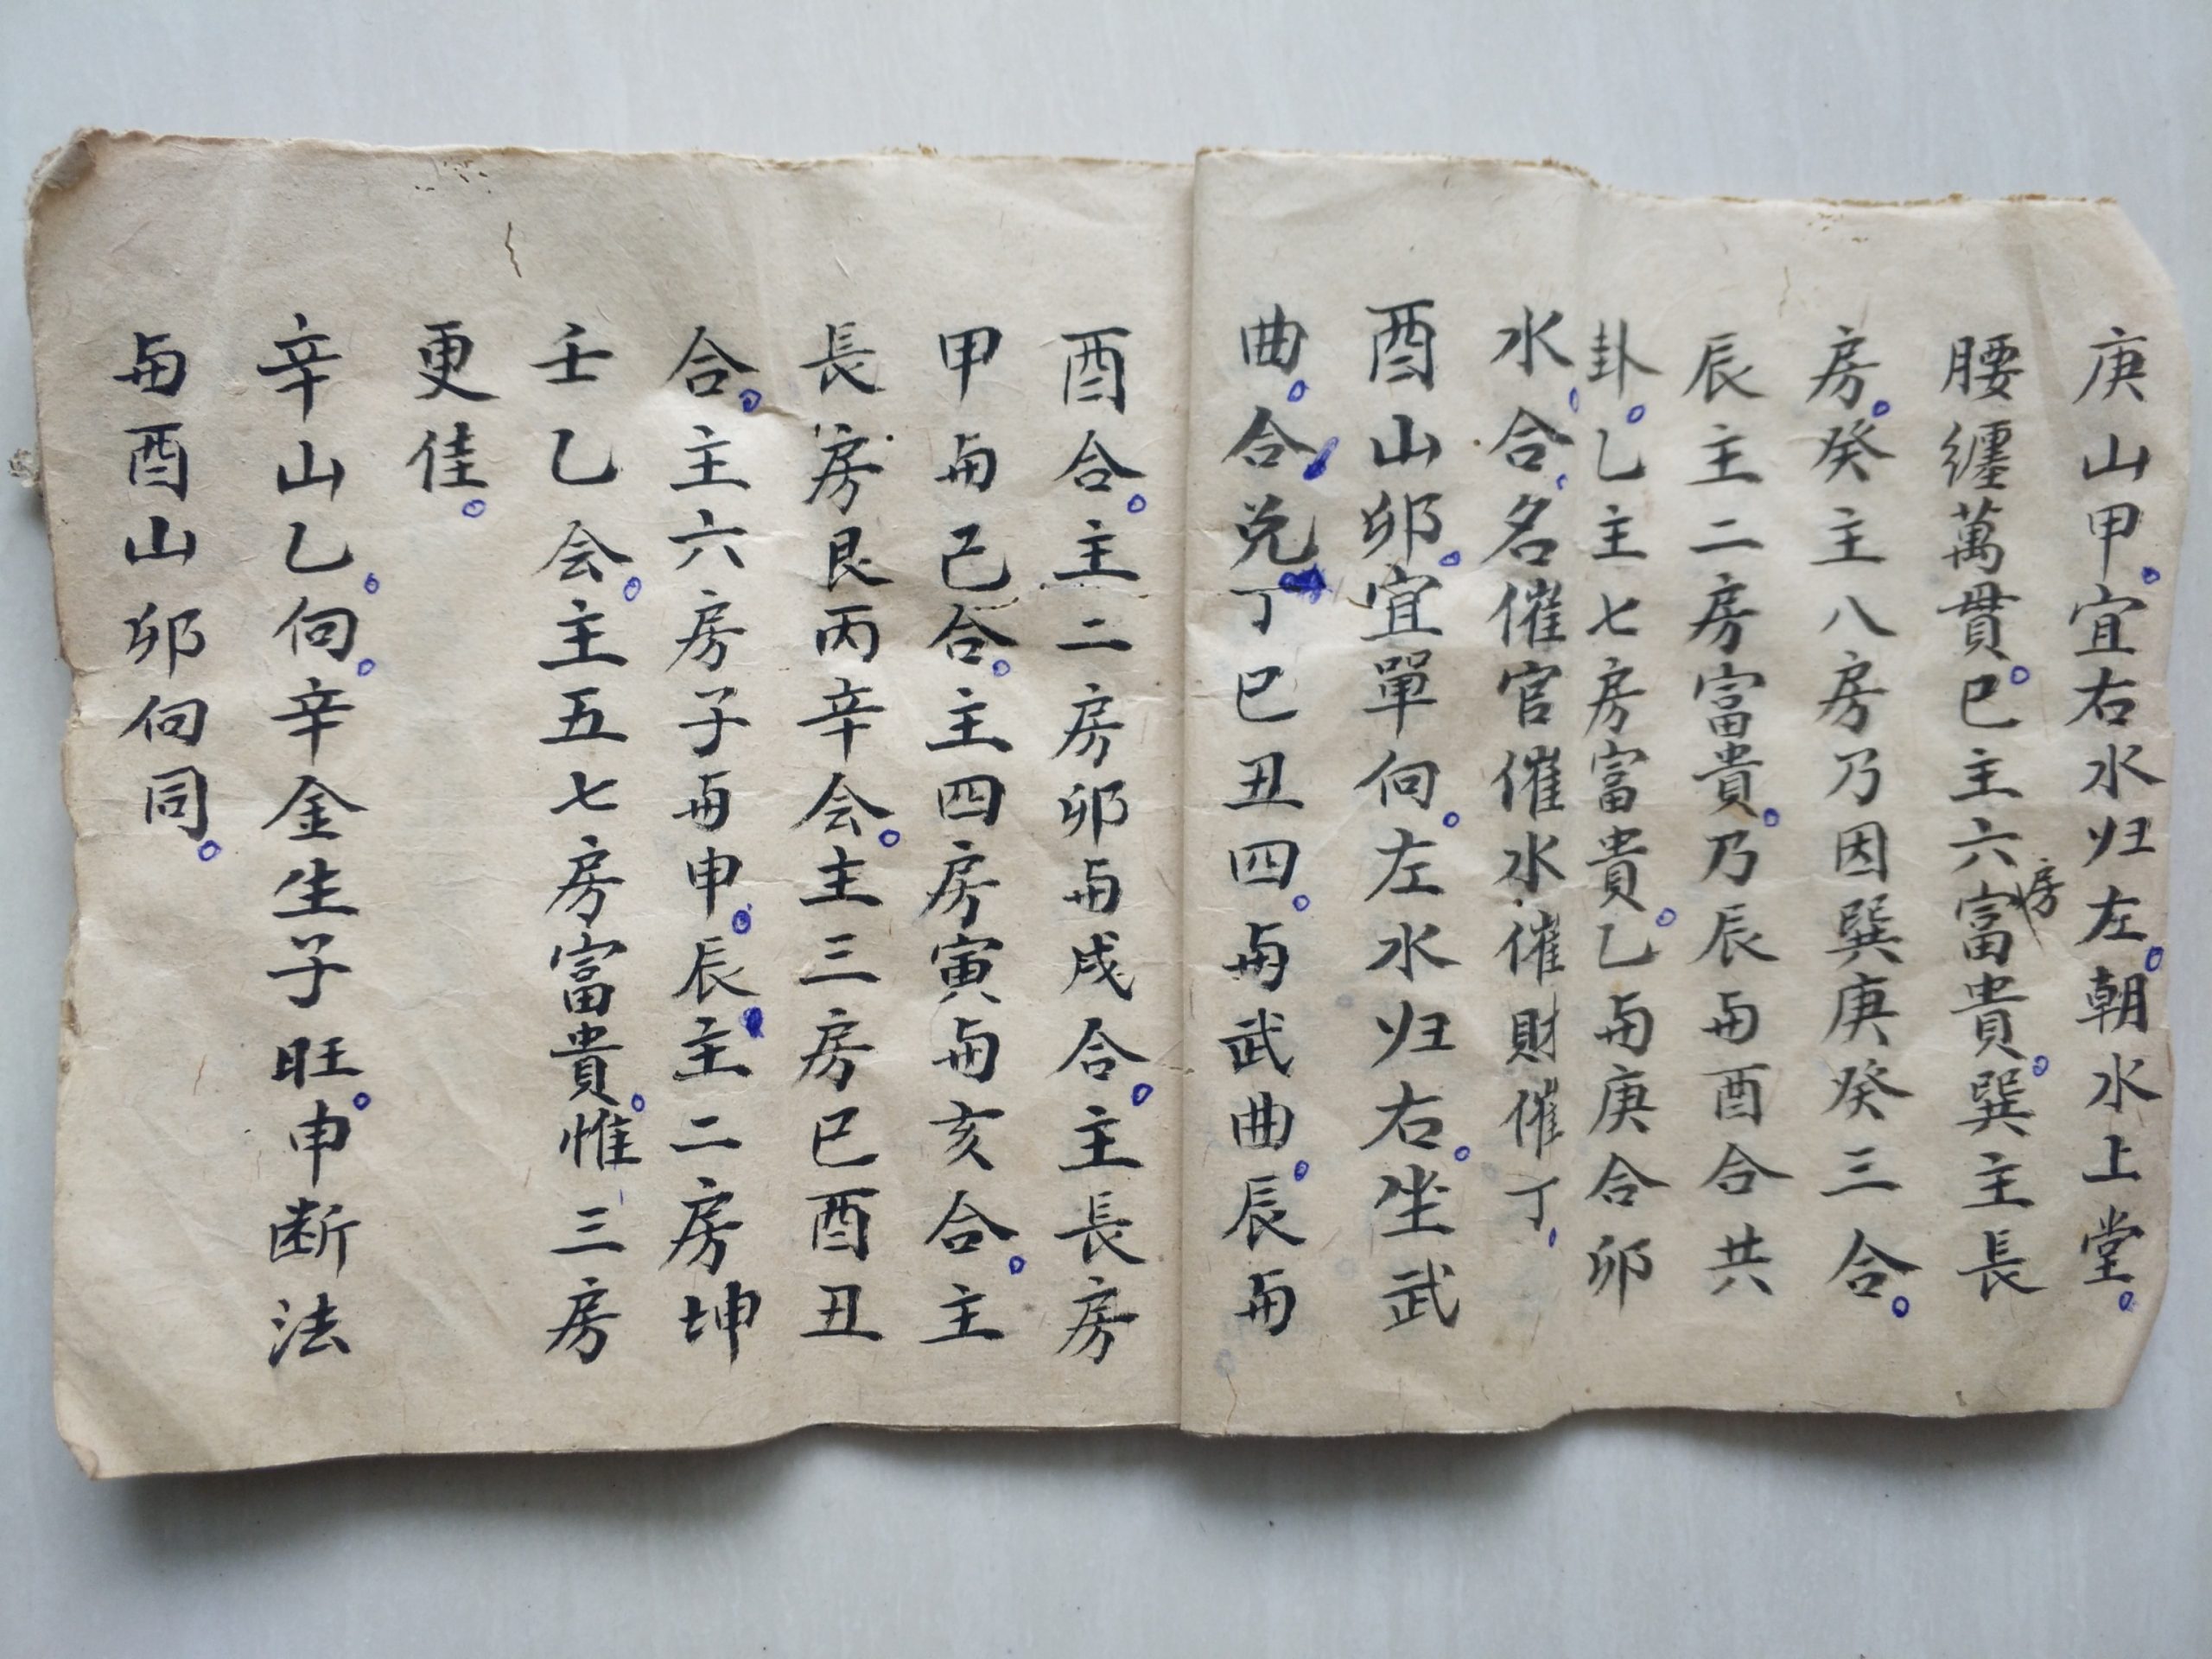 庚山甲。宜右水归左。朝水上堂。
腰纏萬貫。巳主六房富貴。巽主長
房。癸主八房乃因巽庚癸三合。
辰主二房富貴。乃辰与酉合共
卦。乙主七房富貴。乙与庚合卯
水、合、名催官催水催財催丁、
酉山卯。宜單向。左水归右。坐武
曲。合兑丁巳丑四。与武曲。辰与
酉合。主二房卯与戌合。主長房
甲与己合。主四房寅与亥合。主
長房艮丙辛会。主三房巳酉丑
合。主六房子与申。辰主二房坤
壬乙会。主五七房富貴。惟三房
更佳。
辛山乙。向。辛金生子旺。申断法
与酉山卯向同。